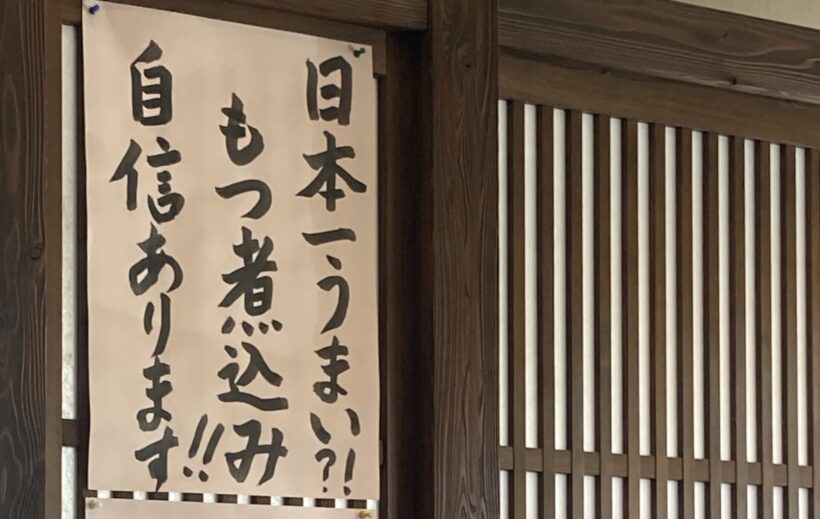 日本一うまい?!
もつ煮込み
自信あります!!